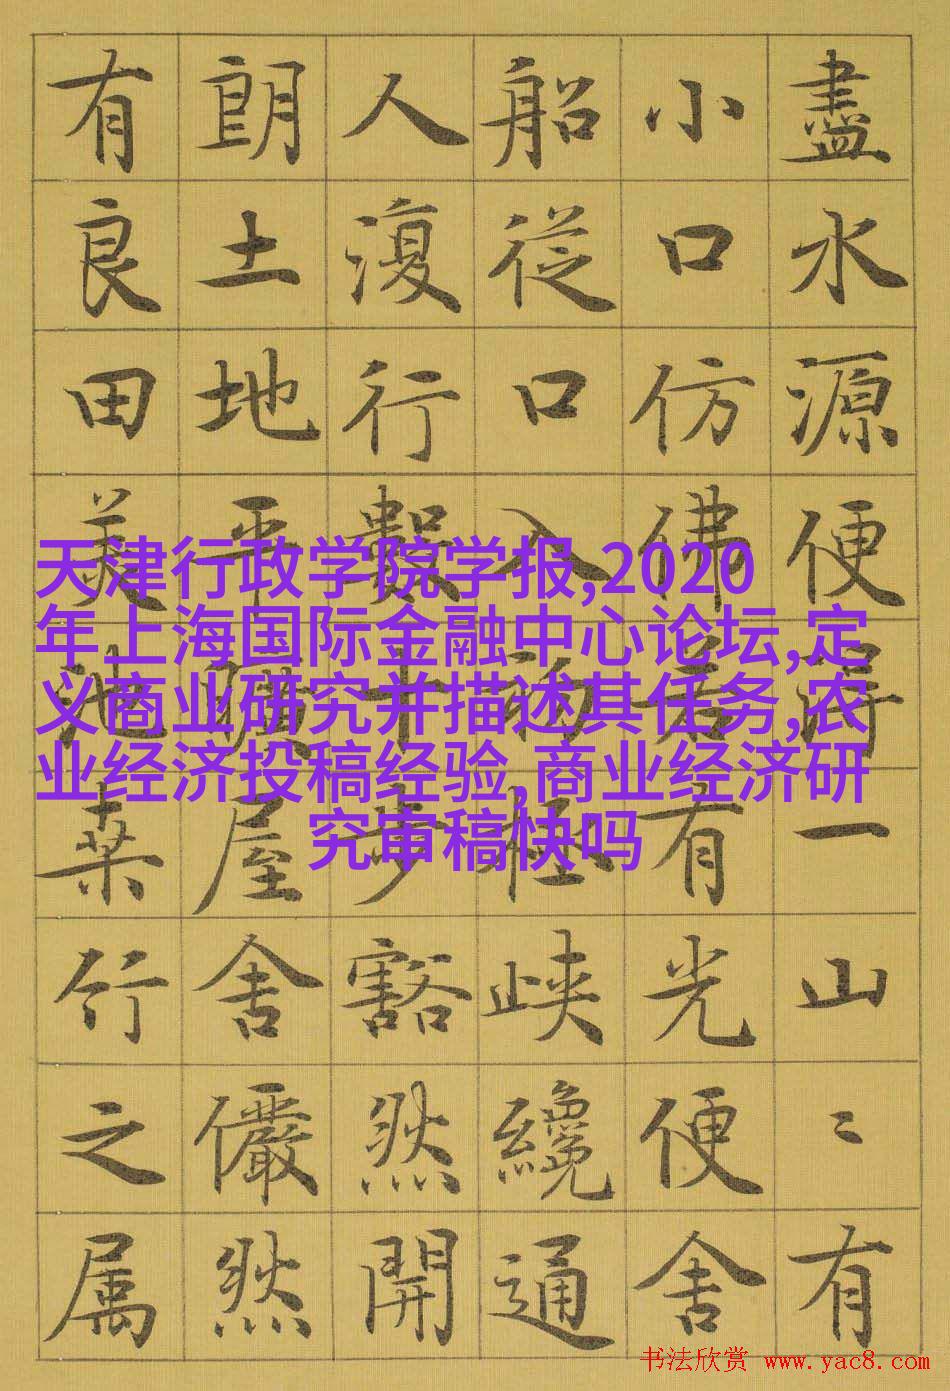 盡水源便得一山〻有
小口仿佛若有光便舍
船從口入初極峽纔通
人復行數十步豁然開
朗土地平曠屋舍儼然
有良田美池桑竹之属
天津行政学院学报,2020
年上海国际金融中心论坛,定
义商业研究并描述其任务,农
业经济投稿经验,商业经济研
究审稿快吗
书法欣赏 www.yac8.com